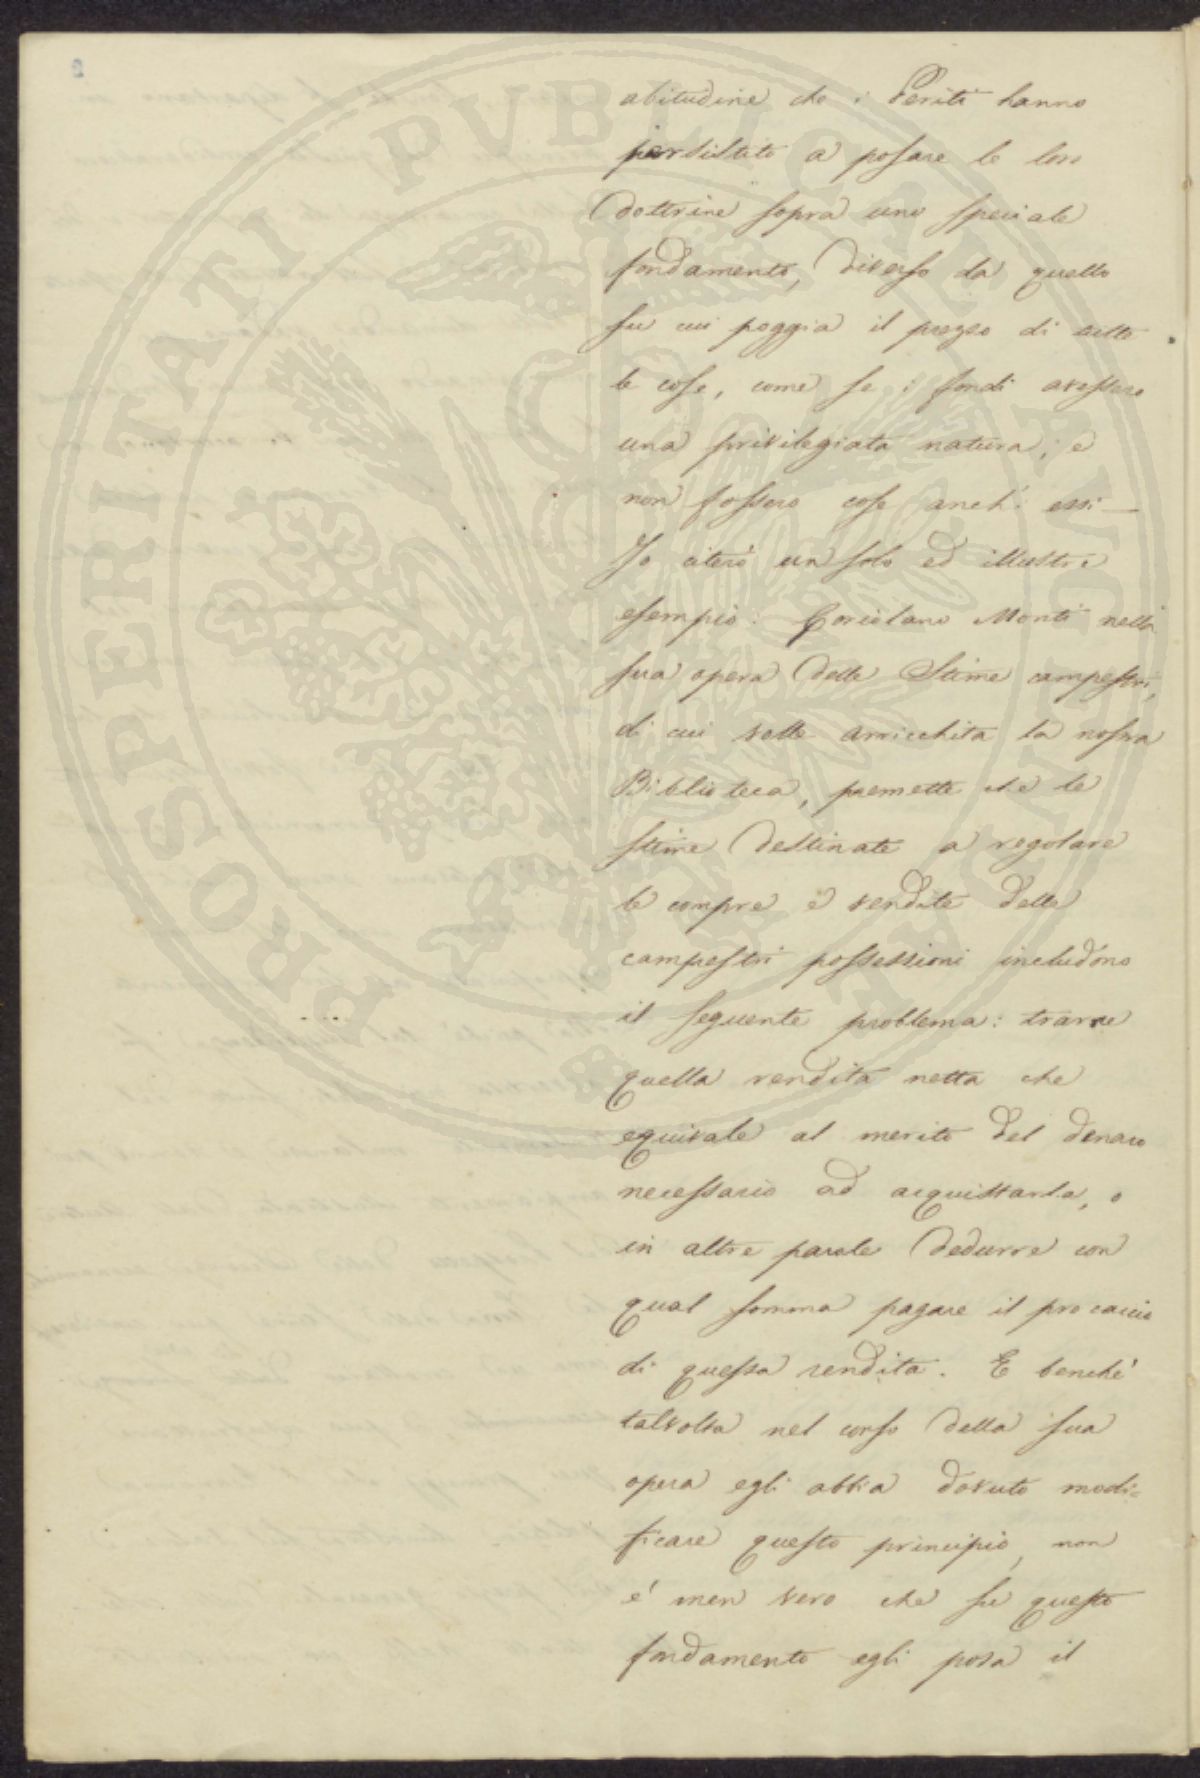 abitudine che i Periti hanno
persistito a posare le loro
dottrine sopra uno speciale
fondamento, diverso da quello
su cui poggia il prezzo di tutte
le cose, come se i fondi avessero
una privilegiata natura, e
non fossero cose anch' essi —
Io citerò un solo ed illustre
esempio: Coriolano Monti nella
sua opera delle Stime campestri,
di cui volle arricchita la nostra
Biblioteca, premette che le
stime destinate a regolare
le compre e vendite delle
campestri possessioni includono
il seguente problema: trarre
quella rendita netta che
equivale al merito del denaro
necessario ad acquistarla, o
in altre parole dedurre con
qual somma pagare il procaccio
di questa rendita. E benché
talvolta nel corso della sua
opera egli abbia dovuto modi=
ficare questo principio, non
e' men vero che su questo
fondamento egli posa il
PROSPERITATI PUBLICAE AUGENDAE